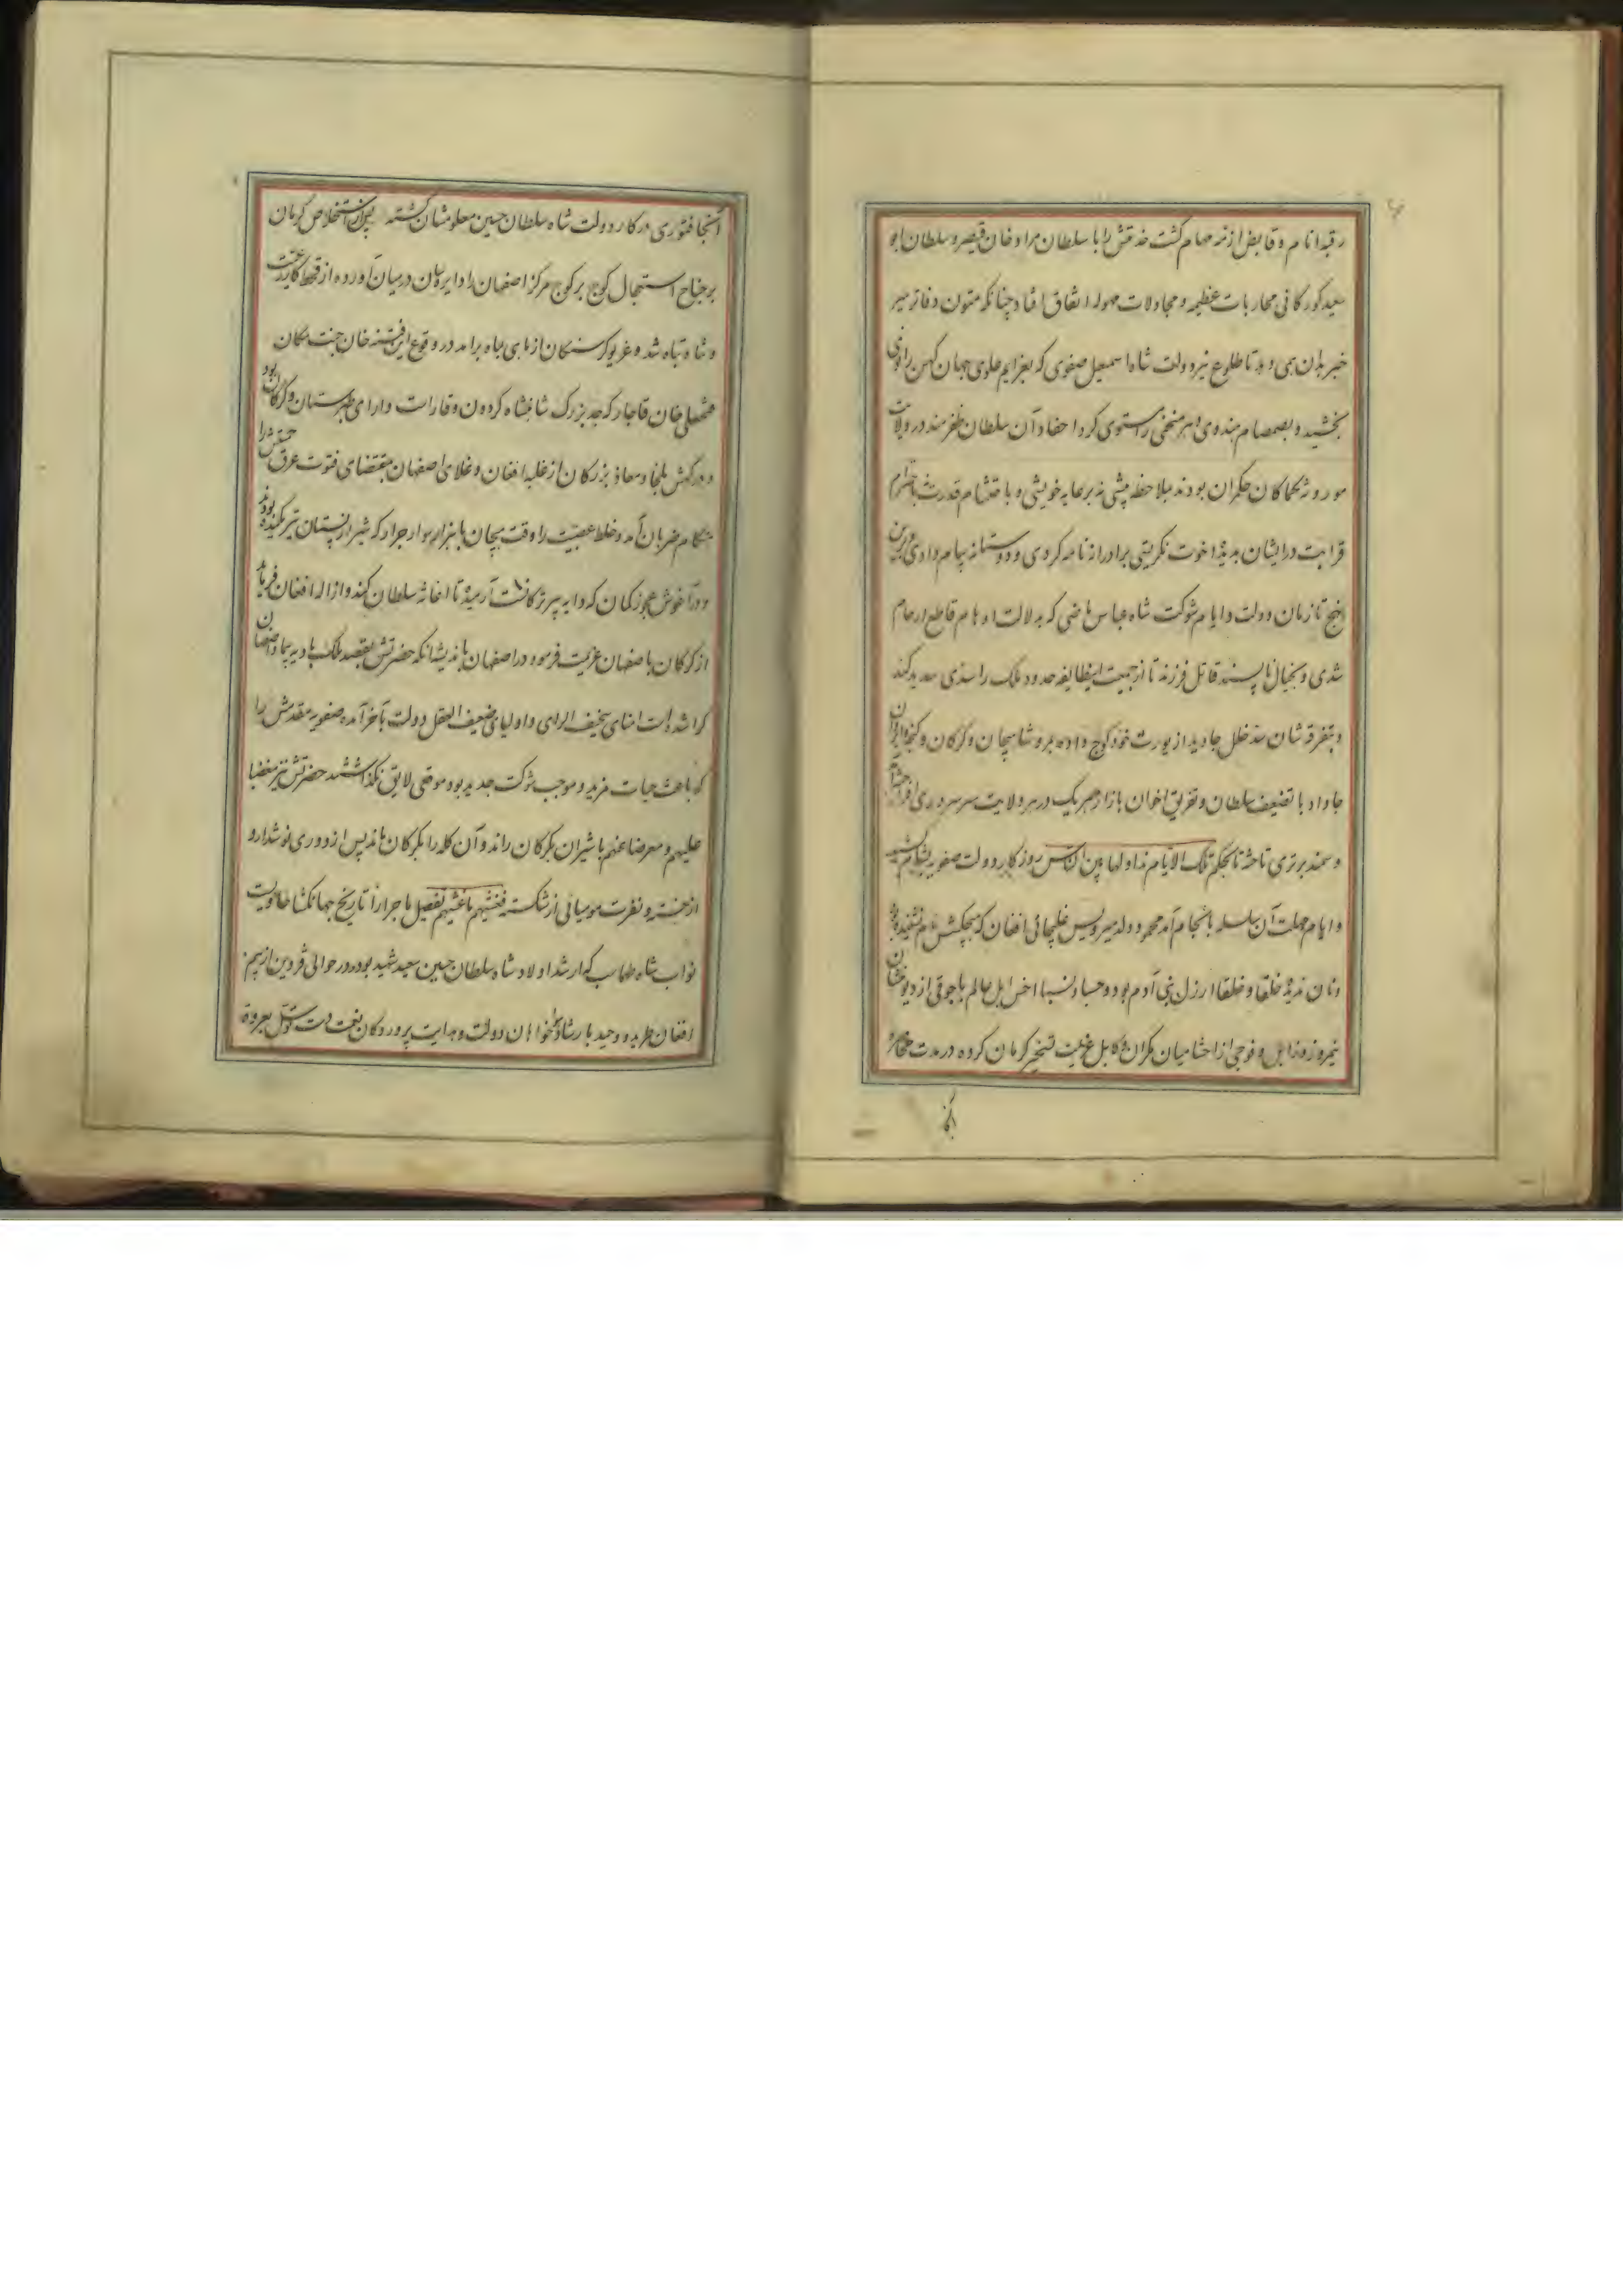 رقبه انام و قابض ازمه مهام گشت خدمتش را با سلطان مراد خان قیصر و سلطان ابو
سعید کورکانی محاربات عظیمه و مجادلات مهوله اتفاق افتاد چنانکه متون دفاتر سیر
خبر بدان همی دهد تا طلوع نیر دولت شاه اسمعیل صفوی که بعزایم علوی جهان کهن را نوی
بخشید و بصمصام هندوی امر منحنی را مستوی کرد احفاد آن سلطان ظفرمند در ولایات
موروثه کماکان حکمران بودند بملاحظه پیشی نه برعایه خویشی و باحتشام قدرت نه باحترام
قرابت در ایشان بدیده اخوت نگریستی برادرانه نامه کردی و دوستانه پیام دادی برین
نهج تا زمان دولت و ایام شوکت شاه عباس ماضی که بدلالت اوهام قاطع ارحام
شدی و بخیال ناپسند قاتل فرزند تا از جمعیت این طایفه حدود ملک را سدی سدید کند
و بتفرقه شان سد خلل جاوید از یورت خود کوچ داده بمرو شاهیجان و کرکان و کنجه و ایروان
جا داد با تضعیف سلطان و تفریق اخوان بازار هر یک در هر ولایت سر سروری افراشته
و سمند برتری تاخته تا بحکم تلک الایام نداولها بین الناس روز کار دولت صفویه بشام رسید
و ایام مهلت آن سلسله بانجام آمد محمود ولد میرویس غلیجائی افغان که هیچکسش نام نشنیده
و نان ندیده خلقا و خلقا ارذل بنی آدم بود و حسبا و نسبا اخس اهل عالم با جوقی از دیو منشان
نیمروز و زابل و فوجی از احشامیان مکران و کابل عزیمت تسخیر کرمان کرده در مدت
آنجا
آنجا فتوری در کار دولت شاه سلطان حسین معلومشان کشته پس از استخلاص کرمان
بر جناح استعجال کوچ بر کوچ مرکز اصفهان را دایره سان در میان آورده از قحط کار رعیت
و شاه تباه شد و غریو کرسنکان از ماهی بماه برآمد در وقوع این فتنه خان جنت مکان
فتحعلی خان قاجار که جد بزرک شاهنشاه کردون وقار است دارای طبرستان و کرکان بود
و درکهش ملجا و معاذ بزرکان از غلبه افغان و غلای اصفهان بمقتضای فتوت عرق حمیتش را
هنکام ضربان آمد و خلط عصبیت را وقت هیجان با هزار سوار جرار که شیر از پستان تیر مکیده بودند
و در آغوش عجوز کمان که دایه پیر آرمیده تا اغاثه سلطان کند و ازاله افغان
از کرکان باصفهان عزیمت فرمود در اصفهان باندیشه آنکه حضرتش بقصد ملک بادیه پیما و اصفهان
کرا شده است امنای سخیف الرای و اولیای ضعیف العقل دولت بآخر آمده صفویه مقدمش را
که باعث حیات مزید و موجب شوکت جدید بود موقعی لایق نکذاشتند حضرتش نیز مغضبا
علیهم و معرضا عنهم با شیران بکرکان راند و آن کله را بکرکان ماند پس از دوری نوشدارو
از خسته و نفرت مومیائی از شکسته فغشیهم ما غشیهم تفصیل ماجرا را تاریخ جهانکشا حاویست
نواب شاه طهماسب که ارشد اولاد شاه سلطان حسین سعید شهید بود در حوالی قزوین از بیم
افغان طرید و وحید بارشاد خواهان دولت و هدایت پروردکان نعمت دست توسل بعروة